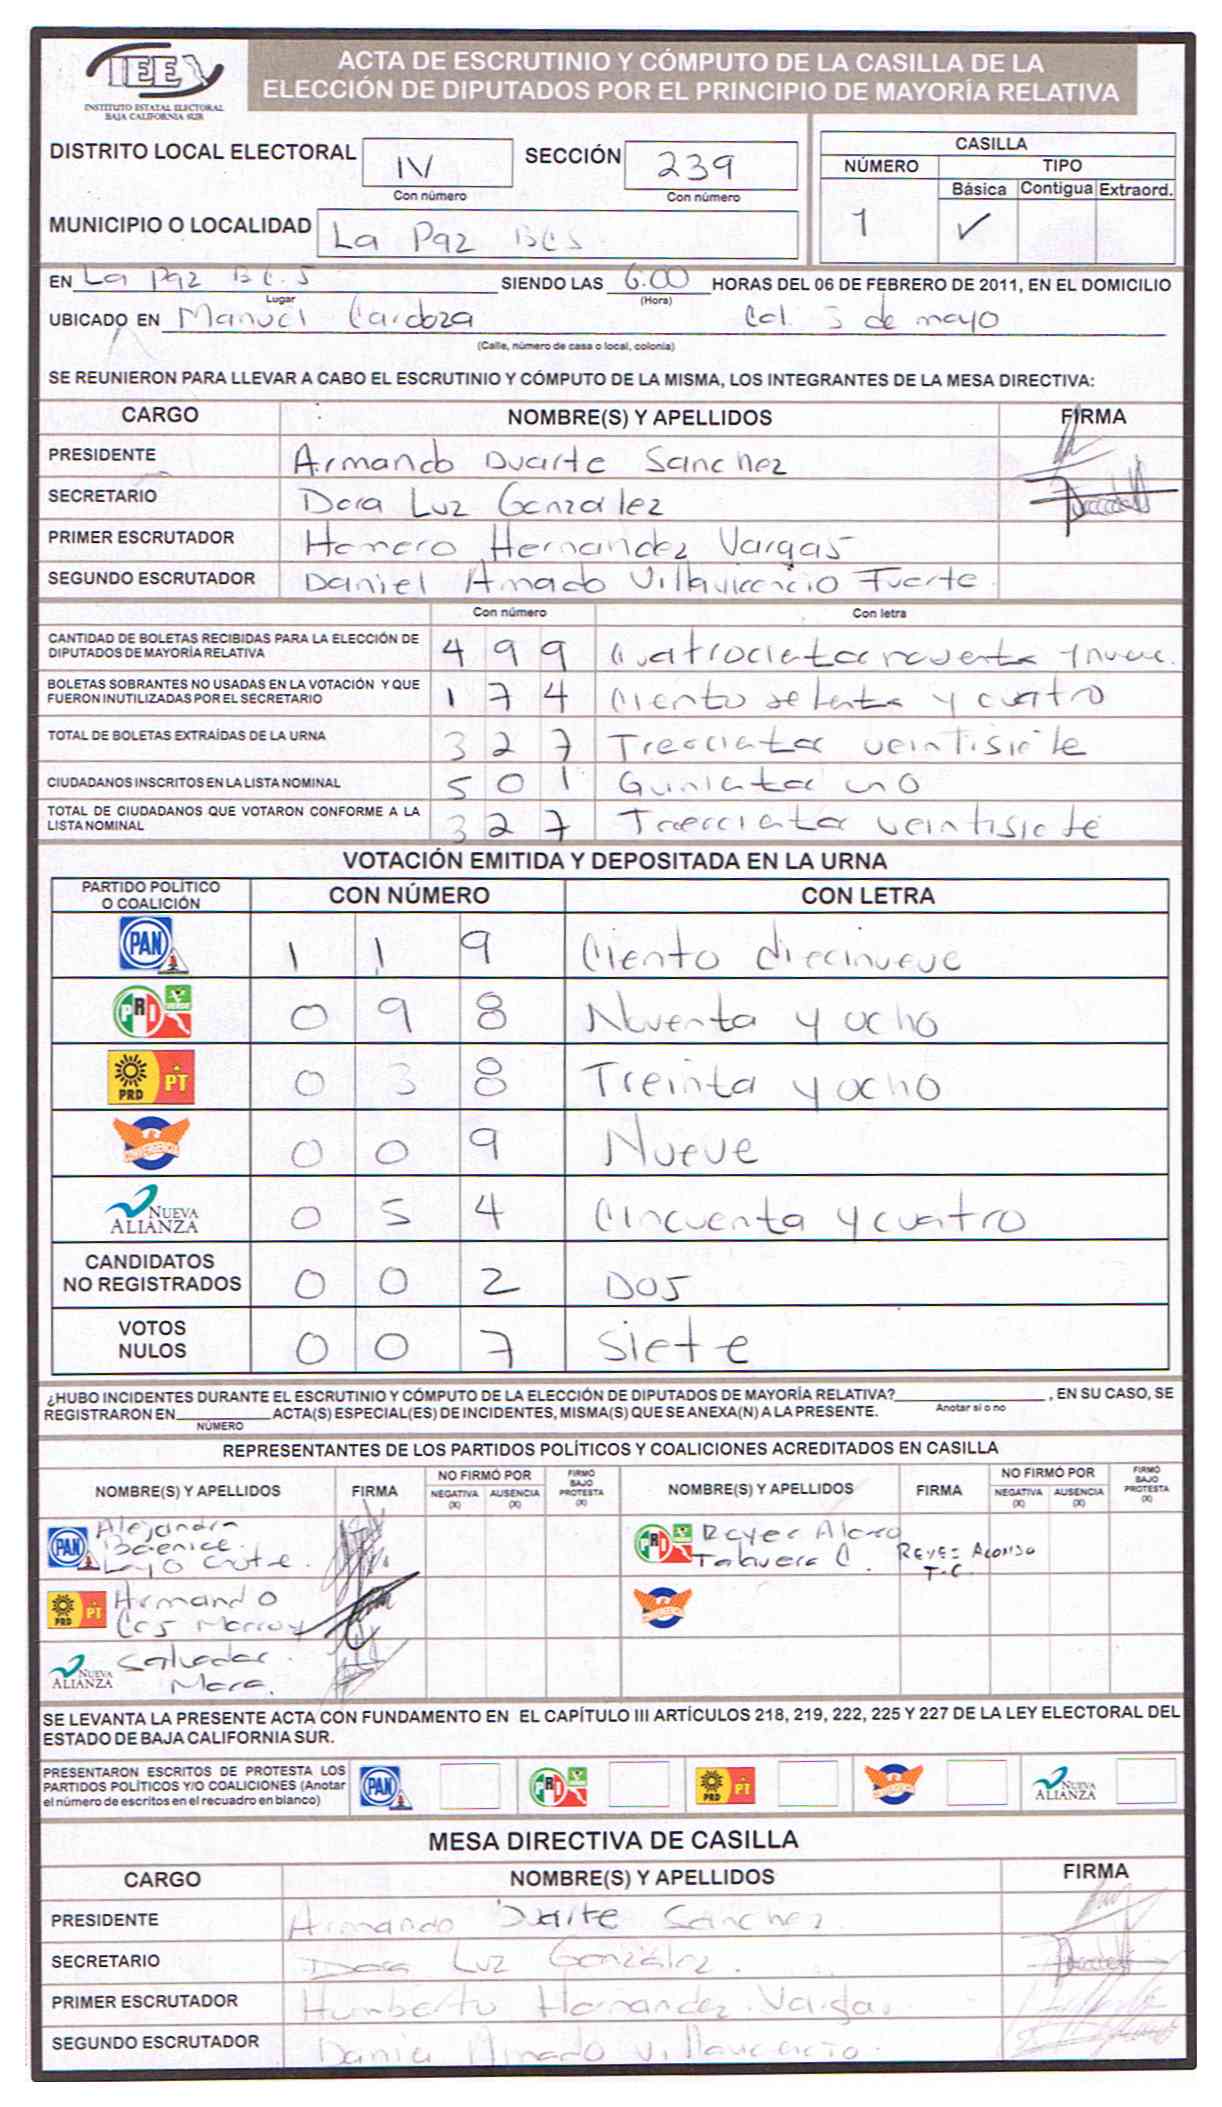 IEE
INSTITUTO ESTATAL ELECTORAL
BAJA CALIFORNIA SUR
ACTA DE ESCRUTINIO Y CÓMPUTO DE LA CASILLA DE LA
ELECCIÓN DE DIPUTADOS POR EL PRINCIPIO DE MAYORÍA RELATIVA
DISTRITO LOCAL ELECTORAL IV SECCIÓN 239
Con número Con número
CASILLA
NÚMERO TIPO
Básica Contigua Extraord.
1 ✓
MUNICIPIO O LOCALIDAD La Paz BCS
EN La Paz B.C.S SIENDO LAS 6:00 HORAS DEL 06 DE FEBRERO DE 2011, EN EL DOMICILIO
Lugar (Hora)
UBICADO EN Manuel Cardoza Col. 5 de mayo
(Calle, número de casa o local, colonia)
SE REUNIERON PARA LLEVAR A CABO EL ESCRUTINIO Y CÓMPUTO DE LA MISMA, LOS INTEGRANTES DE LA MESA DIRECTIVA:
CARGO NOMBRE(S) Y APELLIDOS FIRMA
PRESIDENTE Armando Duarte Sanchez
SECRETARIO Dora Luz Gonzalez
PRIMER ESCRUTADOR Homero Hernandez Vargas
SEGUNDO ESCRUTADOR Daniel Amado Villavicencio Fuerte
Con número Con letra
CANTIDAD DE BOLETAS RECIBIDAS PARA LA ELECCIÓN DE
DIPUTADOS DE MAYORÍA RELATIVA 4 9 9 Cuatrocientos noventa y nueve.
BOLETAS SOBRANTES NO USADAS EN LA VOTACIÓN Y QUE
FUERON INUTILIZADAS POR EL SECRETARIO 1 7 4 Ciento setenta y cuatro
TOTAL DE BOLETAS EXTRAÍDAS DE LA URNA 3 2 7 Trescientos veintisiete
CIUDADANOS INSCRITOS EN LA LISTA NOMINAL 5 0 1 Quinientos uno
TOTAL DE CIUDADANOS QUE VOTARON CONFORME A LA
LISTA NOMINAL 3 2 7 Trescientos veintisiete
VOTACIÓN EMITIDA Y DEPOSITADA EN LA URNA
PARTIDO POLÍTICO
O COALICIÓN CON NÚMERO CON LETRA
PAN 1 1 9 Ciento diecinueve
PRI VERDE 0 9 8 Noventa y ocho
PRD PT 0 3 8 Treinta y ocho
CONVERGENCIA 0 0 9 Nueve
NUEVA ALIANZA 0 5 4 Cincuenta y cuatro
CANDIDATOS
NO REGISTRADOS 0 0 2 Dos
VOTOS
NULOS 0 0 7 Siete
¿HUBO INCIDENTES DURANTE EL ESCRUTINIO Y CÓMPUTO DE LA ELECCIÓN DE DIPUTADOS DE MAYORÍA RELATIVA? , EN SU CASO, SE
Anotar si o no
REGISTRARON EN ACTA(S) ESPECIAL(ES) DE INCIDENTES, MISMA(S) QUE SE ANEXA(N) A LA PRESENTE.
NÚMERO
REPRESENTANTES DE LOS PARTIDOS POLÍTICOS Y COALICIONES ACREDITADOS EN CASILLA
NOMBRE(S) Y APELLIDOS FIRMA NO FIRMÓ POR NEGATIVA (X) AUSENCIA (X) FIRMÓ BAJO PROTESTA (X) NOMBRE(S) Y APELLIDOS FIRMA NO FIRMÓ POR NEGATIVA (X) AUSENCIA (X) FIRMÓ BAJO PROTESTA (X)
PAN Alejandra
PRI VERDE Reyes
Talavera C. REYES ALONSO
T.C.
PRD PT Armando
CONVERGENCIA
NUEVA ALIANZA Salvador
Mora.
SE LEVANTA LA PRESENTE ACTA CON FUNDAMENTO EN EL CAPÍTULO III ARTÍCULOS 218, 219, 222, 225 Y 227 DE LA LEY ELECTORAL DEL
ESTADO DE BAJA CALIFORNIA SUR.
PRESENTARON ESCRITOS DE PROTESTA LOS
PARTIDOS POLÍTICOS Y/O COALICIONES (Anotar
el número de escritos en el recuadro en blanco)
PAN PRI VERDE PRD PT CONVERGENCIA NUEVA ALIANZA
MESA DIRECTIVA DE CASILLA
CARGO NOMBRE(S) Y APELLIDOS FIRMA
PRESIDENTE Armando Duarte Sanchez.
SECRETARIO Dora Luz González.
PRIMER ESCRUTADOR Humberto Hernandez Vargas.
SEGUNDO ESCRUTADOR Daniel Amado Villavicencio.